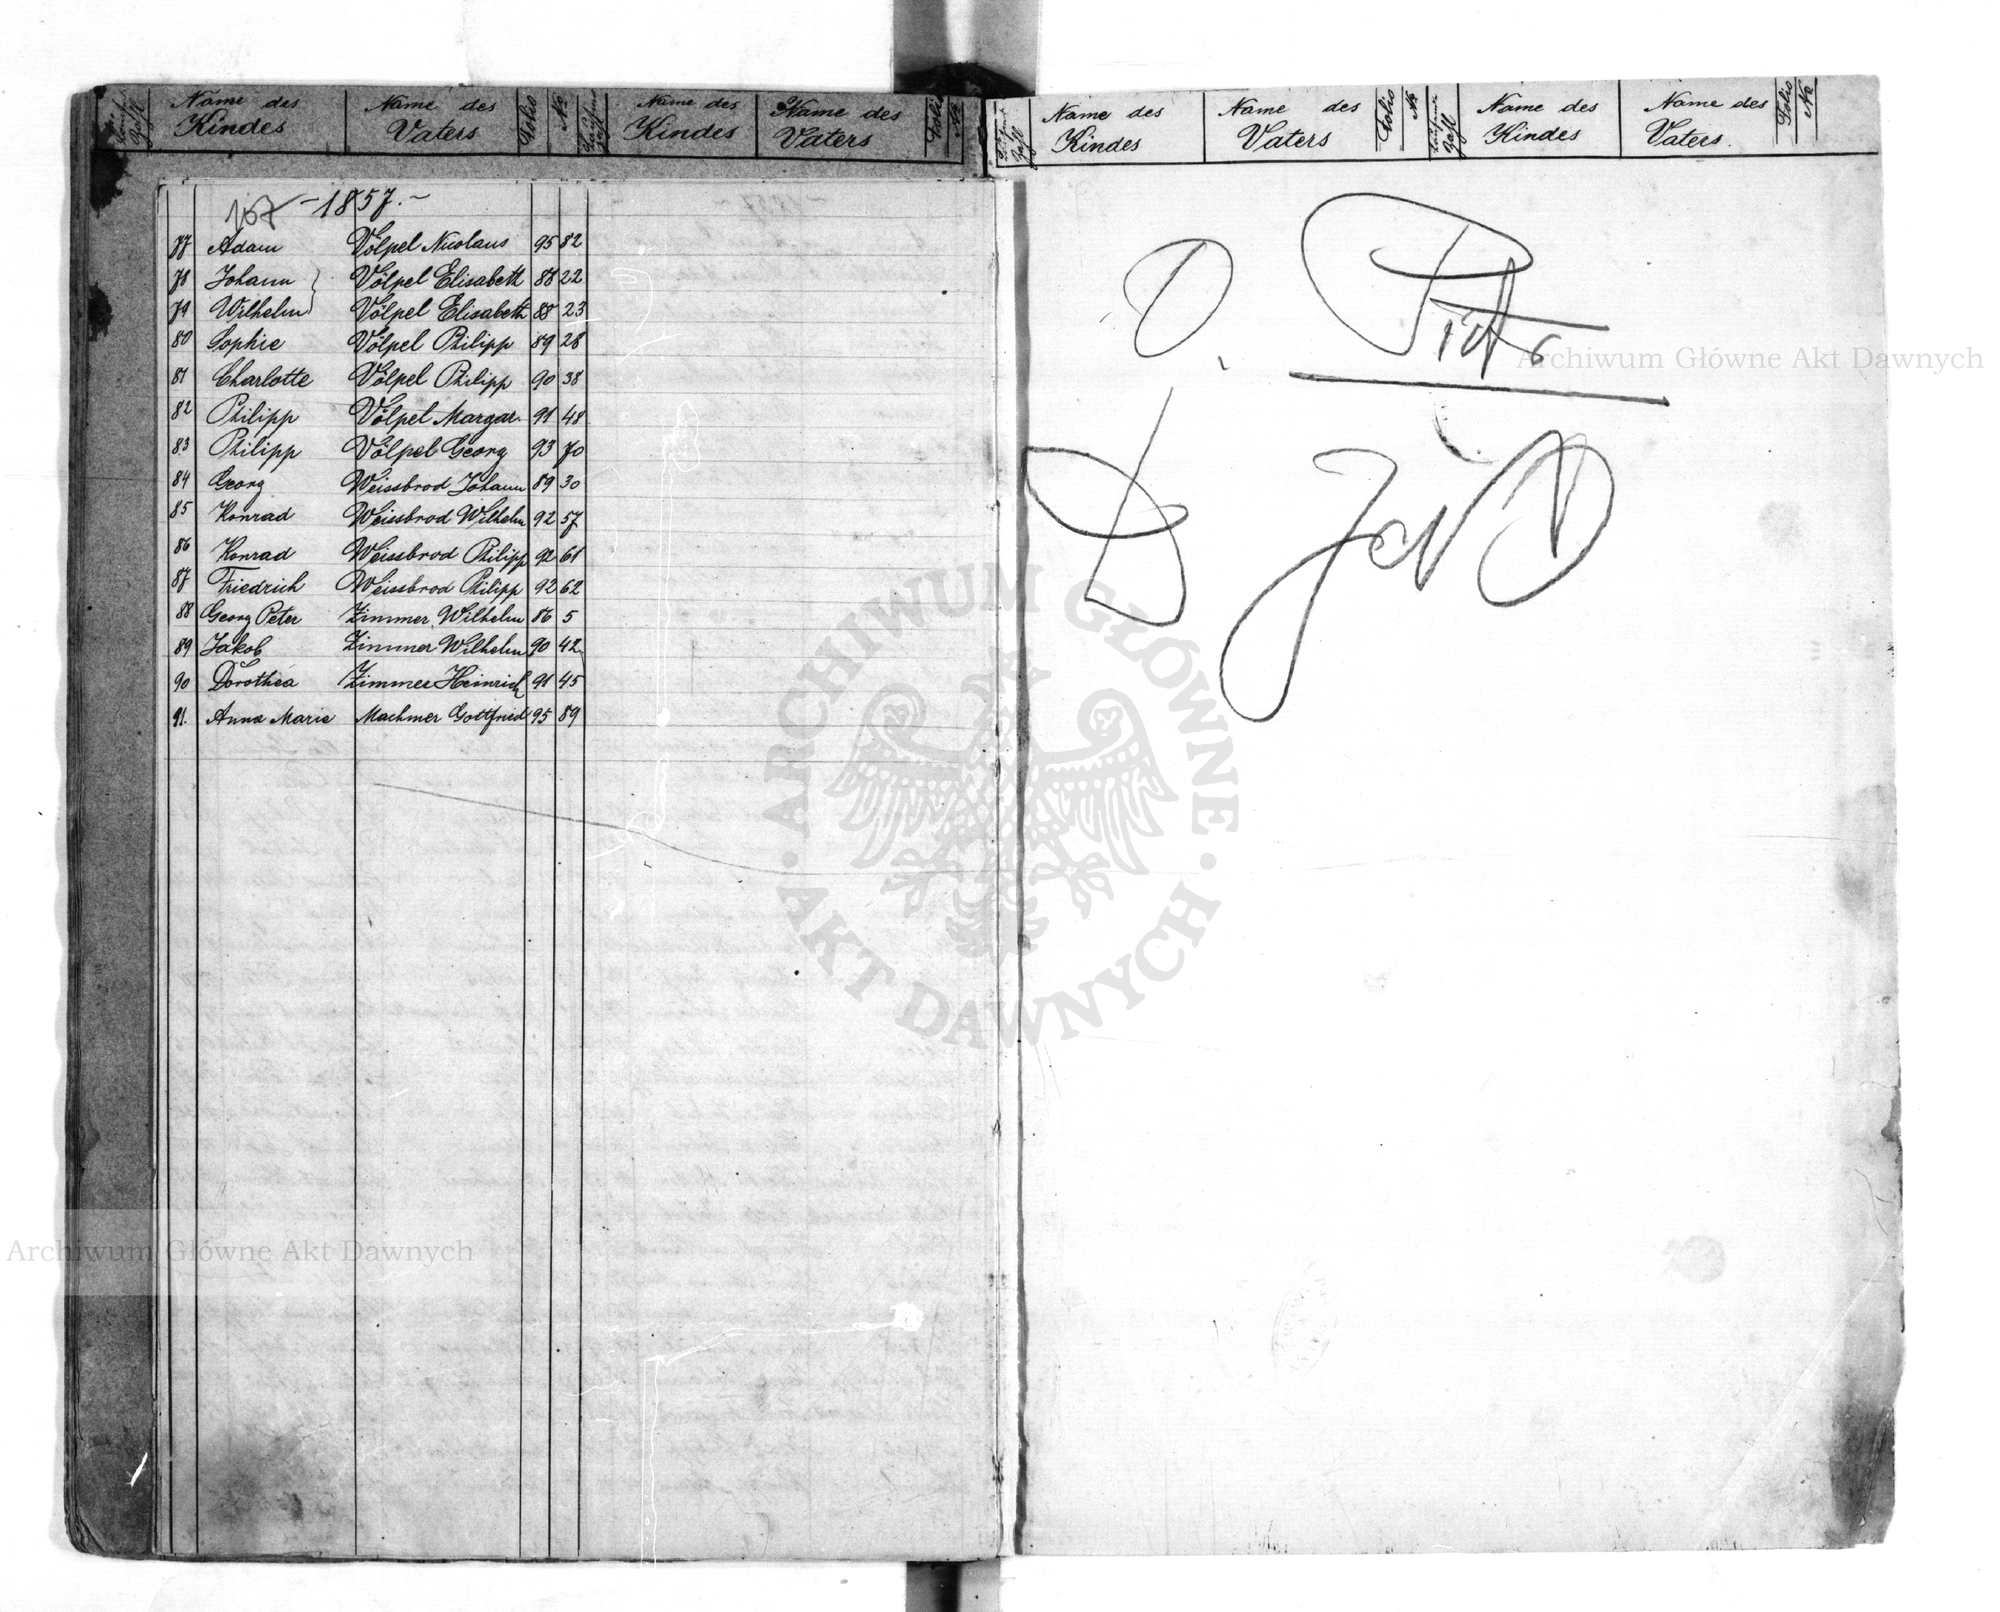 Laufende Zahl Name des Kindes Name des Vaters Folio No Laufende Zahl Name des Kindes Name des Vaters Folio No
157 - 1857. -
77 Adam Völpel Nicolaus 95 82
78 Johann Völpel Elisabeth 88 22
79 Wilhelm Völpel Elisabeth 88 23
80 Sophie Völpel Philipp 89 28
81 Charlotte Völpel Philipp 90 38
82 Philipp Völpel Margar. 91 48
83 Philipp Völpel Georg 93 70
84 Georg Weissbrod Johann 89 30
85 Konrad Weissbrod Wilhelm 92 57
86 Konrad Weissbrod Philipp 92 61
87 Friedrich Weissbrod Philipp 92 62
88 Georg Peter Zimmer Wilhelm 86 5
89 Jakob Zimmer Wilhelm 90 42
90 Dorothea Zimmer Heinrich 91 45
91. Anna Marie Machmer Gottfried 95 89
Laufende Zahl Name des Kindes Name des Vaters Folio No Laufende Zahl Name des Kindes Name des Vaters. Folio No
Archiwum Główne Akt Dawnych
ARCHIWUM GŁÓWNE · AKT DAWNYCH ·
Archiwum Główne Akt Dawnych